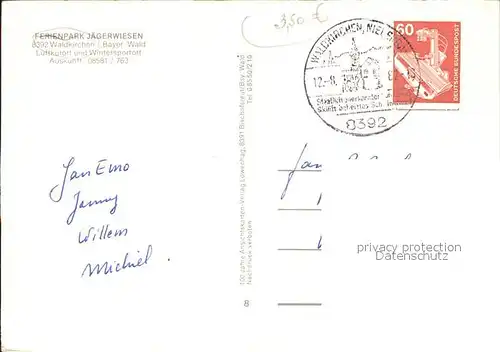 FERIENPARK JÄGERWIESEN
8392 Waldkirchen / Bayer. Wald
Luftkurort und Wintersportort
Auskunft: 08581 / 763
3,50 €
WALDKIRCHEN, NIEDERB
12.-8.
Staatlich anerkannter
8392
60
DEUTSCHE BUNDESPOST
Jan Emo
Janny
Willem
Michiel.
100 Jahre Ansichtskarten-Verlag Löwenhag, 8391 Bischofsreut/Bay. Wald
Nachdruck verboten
Jan
privacy protection
Datenschutz
8